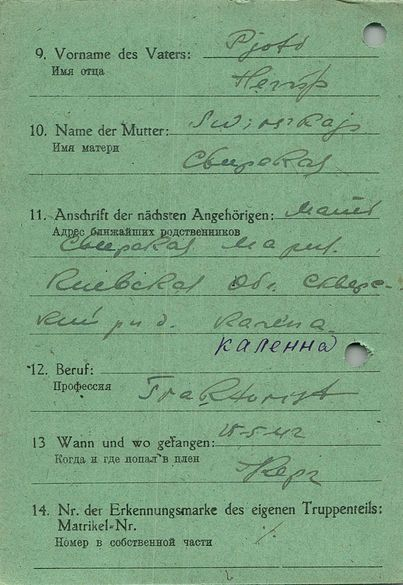 9. Vorname des Vaters: Pjotr
Имя отца
10. Name der Mutter: Swirskaja
Имя матери
Свирская
11. Anschrift der nächsten Angehörigen:
Адрес ближайших родственников
Свирская Мария
Киевская Обл. Сквер-
кий
каленна
12. Beruf:
Профессия
Traktorist
13 Wann und wo gefangen: 18-5-42
Когда и где попал в плен
14. Nr. der Erkennungsmarke des eigenen Truppenteils:
Matrikel-Nr.
Номер в собственной части